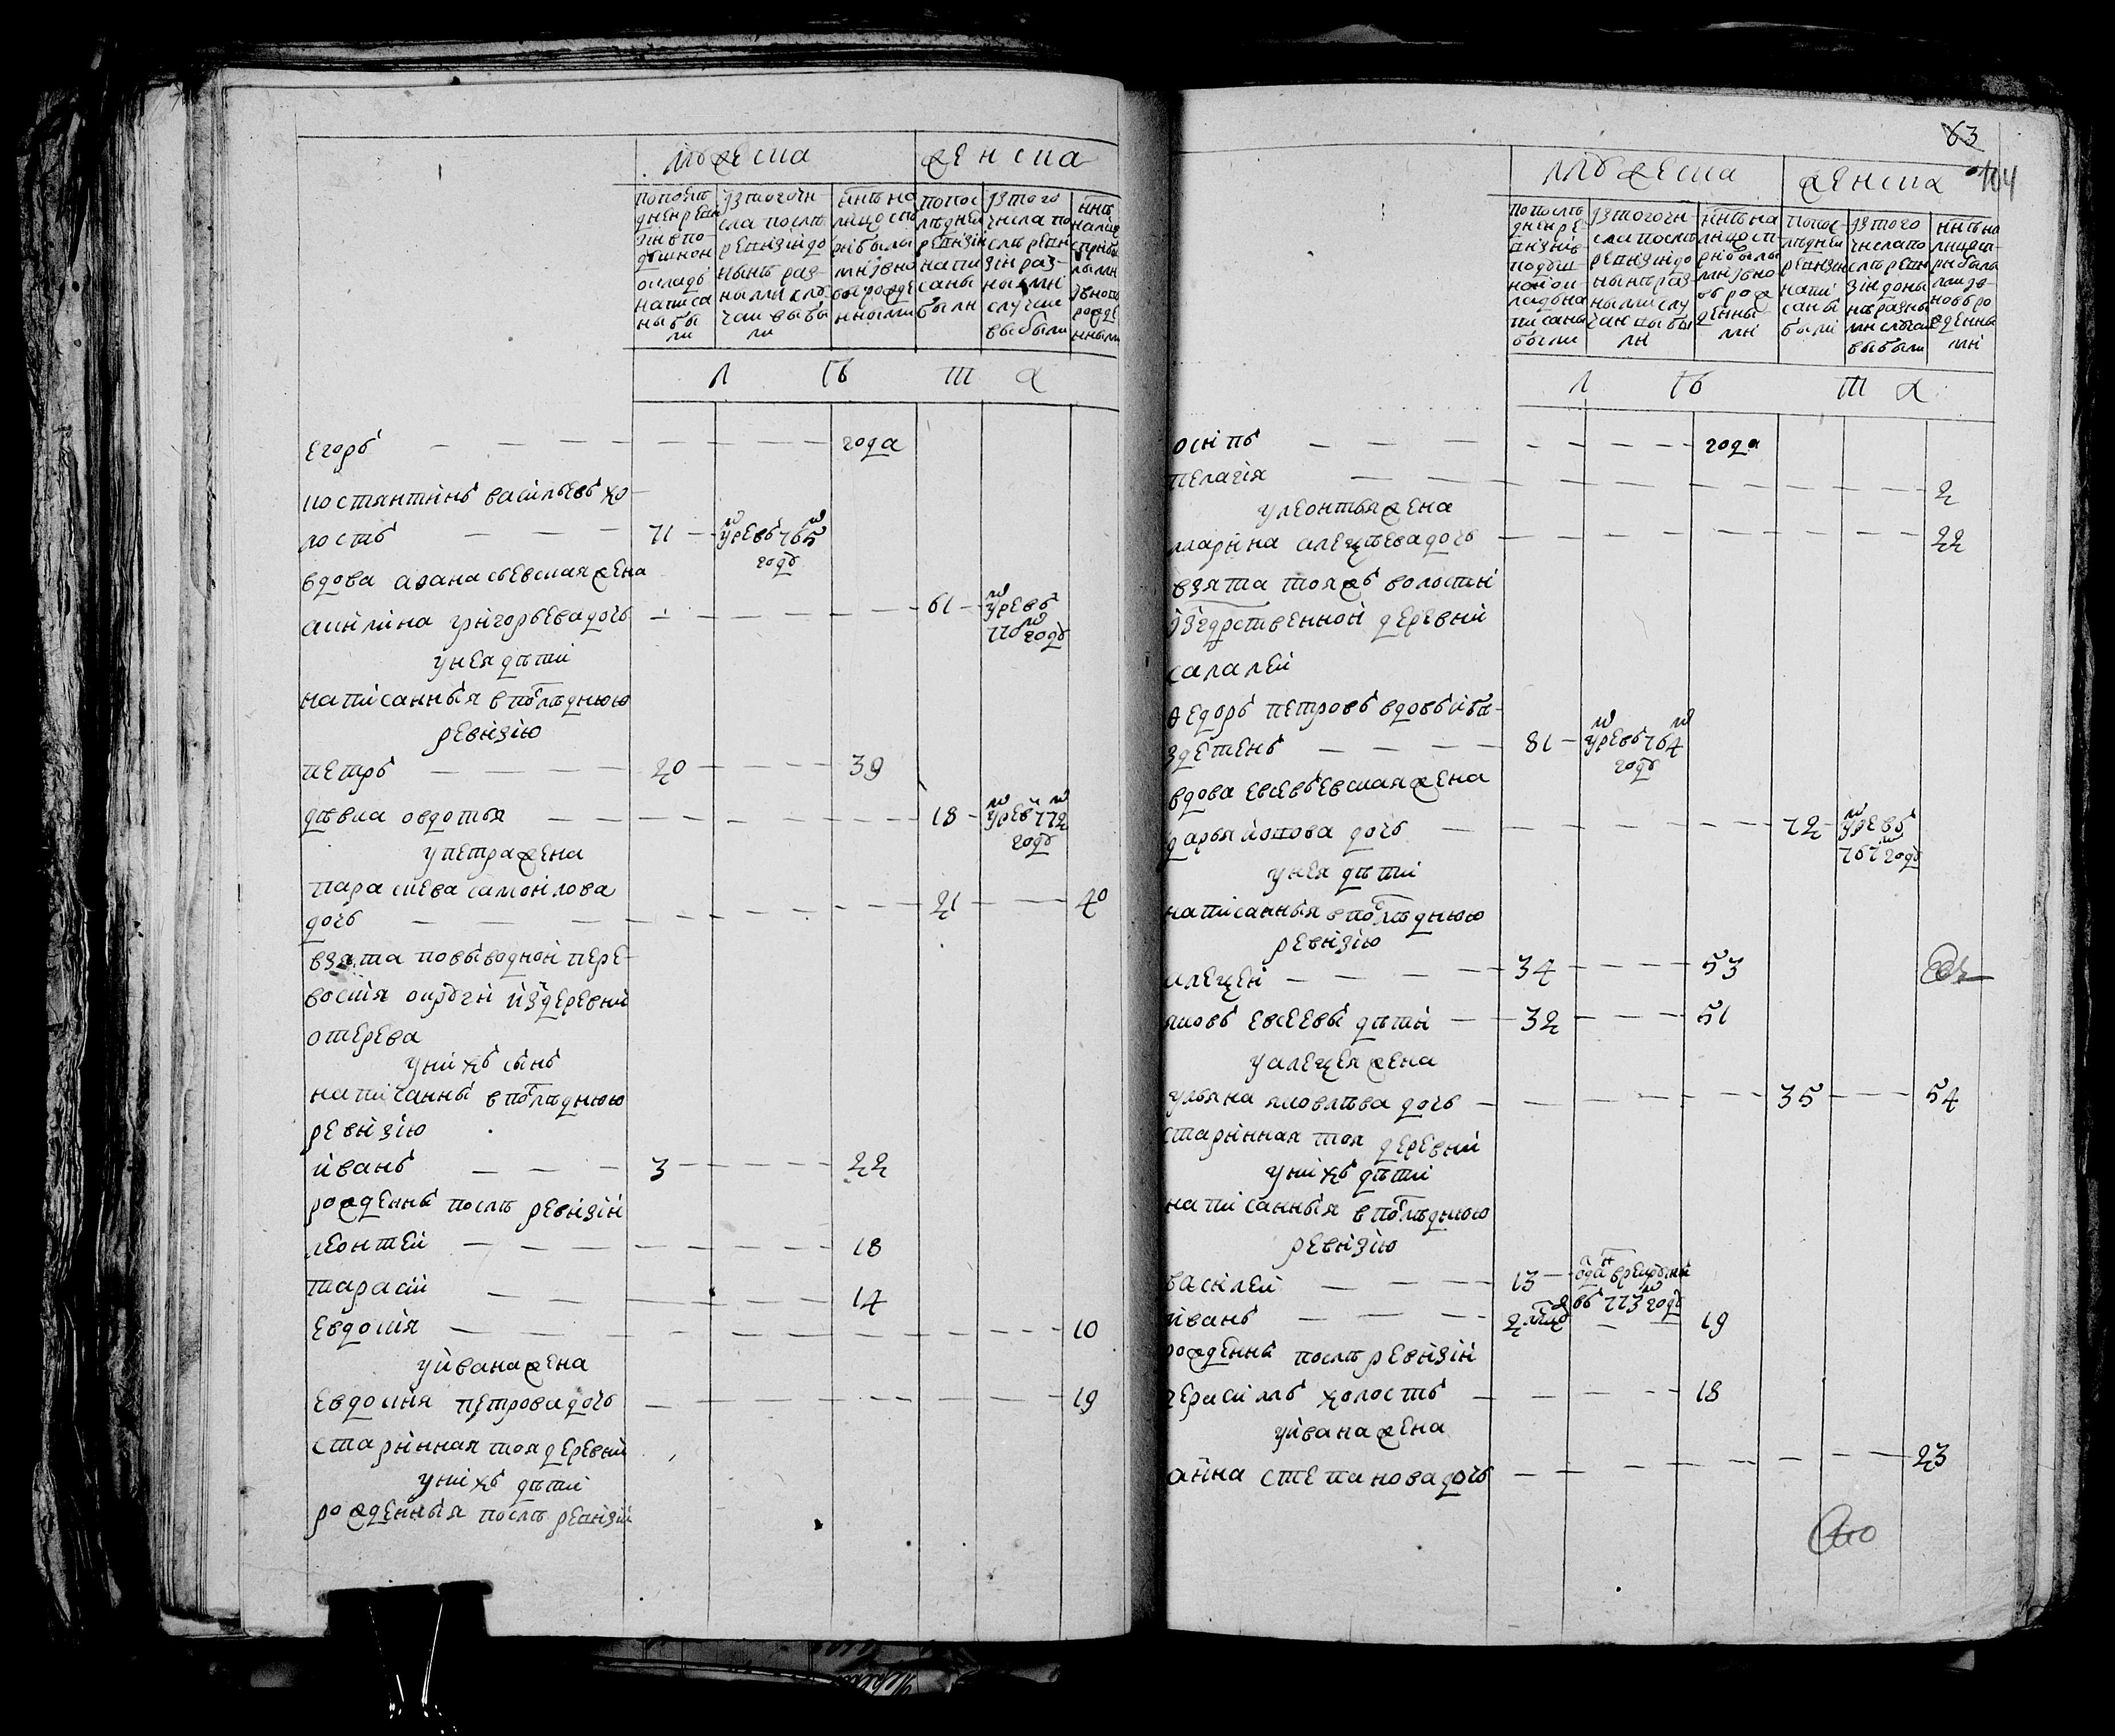 мужеска женска
по послѣдней ревизіи в подушном окладѣ написаны были
из того числа послѣ ревизіи до нынѣ разными случаи выбыли
нынѣ на лицо с прибылыми и вновь рожденными
по последней ревизіи написаны были
из того числа после ревизіи разными случаи выбыли
нынѣ на лицо с прибылыми и вновь рожденными
л ѣ т а
егоръ — года
костянтинъ васильевъ холостъ — 71 — умре въ 765 м году
вдова афанасьевская жена
акилина григорьева дочь — 61 — умре въ 770 м году
у нея дѣти
написанныя в последнюю
ревизію
петръ — 20 — 39
дѣвка овдотья — 18 — умре в 772 м году
у петра жена
парасковья самойлова
дочь — 21 — 40
взята по выводной пере-
воския округи из деревни
отерева
у них сынъ
написанны в последнюю
ревизію
иванъ — 3 — 22
рожденны послѣ ревизіи
леонтей — 18
тарасій — 14
евдокия — 10
у ивана жена
евдокия петрова дочь — 19
старинная тоя деревни
у нихъ дѣти
рожденныя послѣ ревизіи
63
104
мужеска женска
по послѣдней ревизіи в подушном окладѣ написаны были
из того числа послѣ ревизіи до нынѣ разными случаи выбыли
нынѣ на лицо с прибылыми и вновь рожденными
по последней ревизіи написаны были
из того числа послѣ ревизіи до нынѣ разными случаи выбыли
нынѣ на лицо с прибылыми и вновь рожденными
л ѣ т а
осипъ — года
пелагія — 2
у леонтья жена
марина алеѯѣева дочь — 22
взята тояжъ волости
государственной деревни
салалей
ѳедоръ петровъ вдовъ и без-
детенъ — 81 — умре въ 764 м году
вдова евсевьевская жена
дарья иопова дочь — 72 — умре въ 767 м году
у нея дѣти
написанныя в последнюю
ревизію
алеѯей — 34 — 53
яковъ евсеевы дѣти — 32 — 51
у алеѯея жена
ульяна яковлѣва дочь — 35 — 54
старинная тоя деревни
у нихъ дѣти
написанныя в последнюю
ревизію
василей — 13 — отдан в рекруты въ 773 м году
иванъ — 2 мцъ — 19
рожденны послѣ ревизіи
герасимъ холостъ — 18
у ивана жена
анна степанова дочь — 23